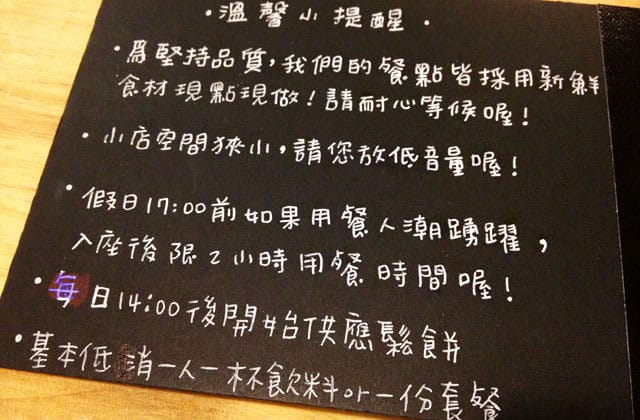 ·溫馨小提醒·
·為堅持品質,我們的餐點皆採用新鮮
食材現點現做!請耐心等候喔!
·小店空間狹小,請您放低音量喔!
·假日17:00前如果用餐人潮踴躍,
入座後限2小時用餐時間喔!
·每日14:00後開始供應鬆餅
·基本低消一人一杯飲料or一份套餐